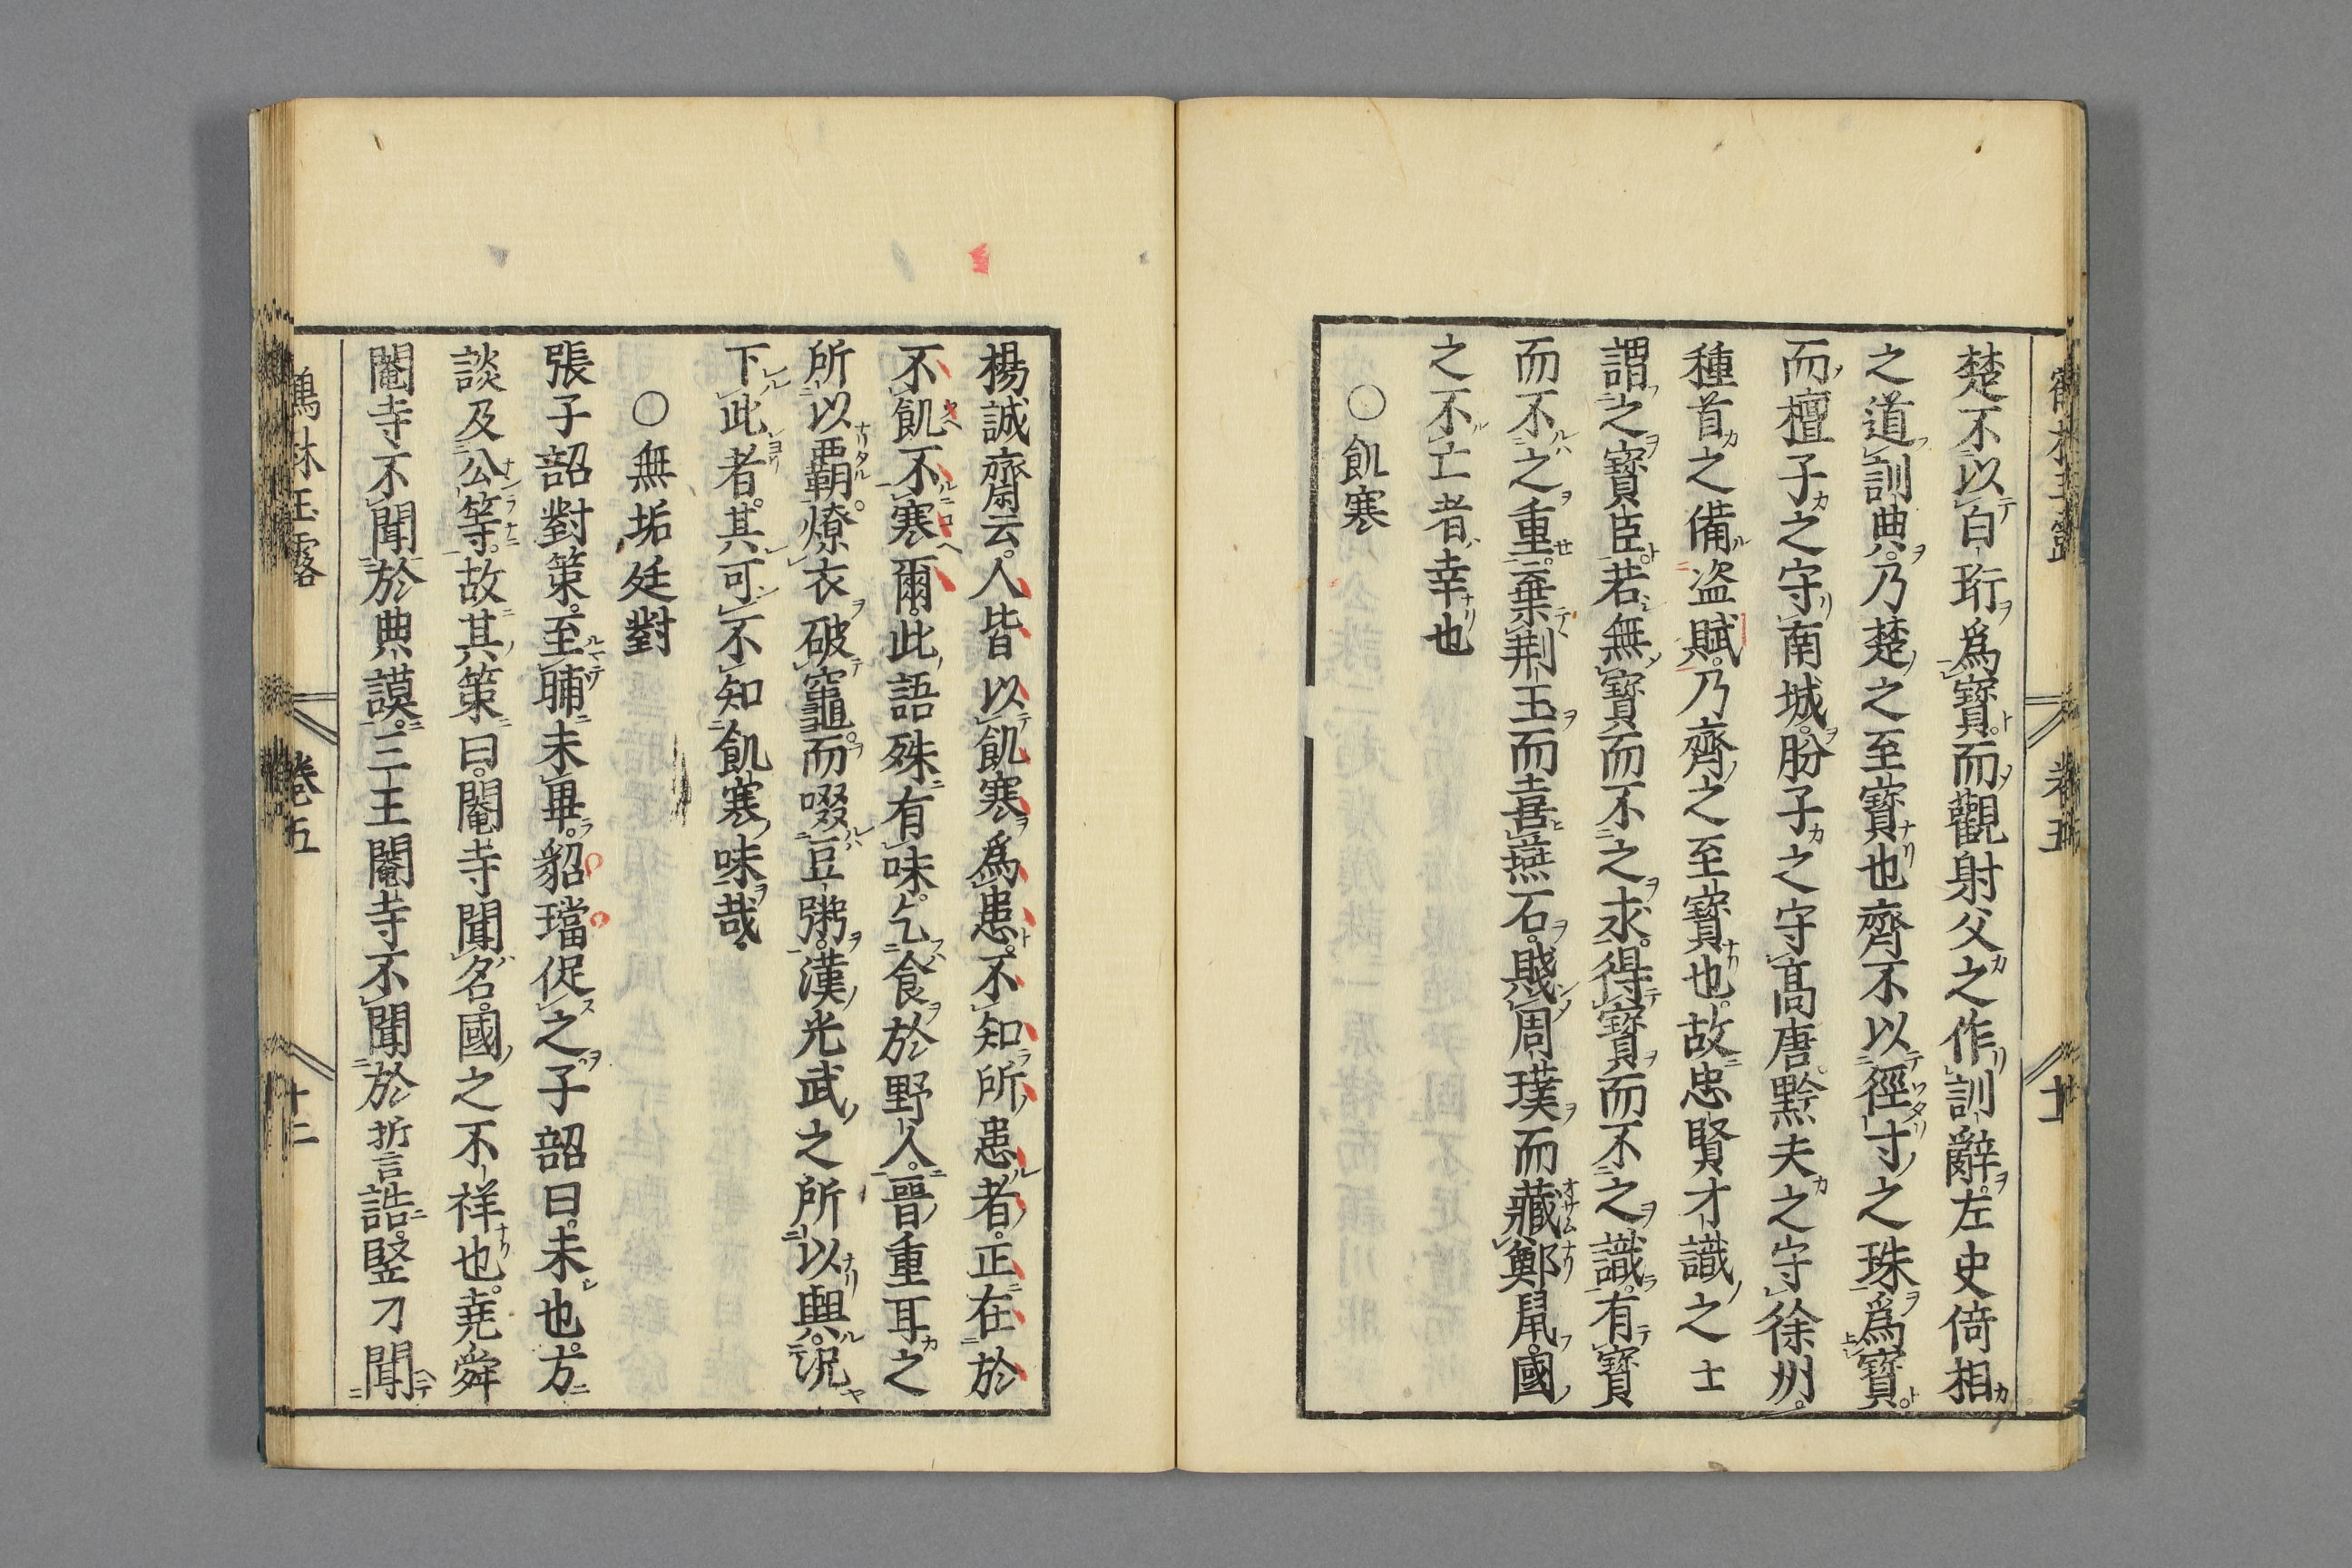 楚不以白珩爲寶。而觀射父之作訓辭。左史倚相
之道訓典。乃楚之至寶也齊不以徑寸之珠爲寶。
而檀子之守南城。肦子之守高唐。黔夫之守徐州。
種首之備盗賊。乃齊之至寶也。故忠賢才識之士
謂之寶臣。若無寶而不之求。得寶而不之識。有寶
而不之重。棄荆玉而喜燕石。賤周璞而藏鄭鼠。國
之不亡者幸也
○飢寒
卷五
楊誠齋云。人皆以飢寒爲患。不知所患者。正在於
不飢不寒爾。此語殊有味。乞食於野人。晉重耳之
所以覇。燎衣破竈。而啜豆粥。漢光武之所以興。況
下此者。其可不知飢寒味哉。
○無垢廷對
張子韶對策。至晡未畢。貂璫促之。子韶曰。未也。方
談及公等。故其策曰。閹寺聞名。國之不祥也。堯舜
閹寺不聞於典謨。三王閹寺不聞於誓誥。竪刁聞
鶴林玉露
卷五
十二